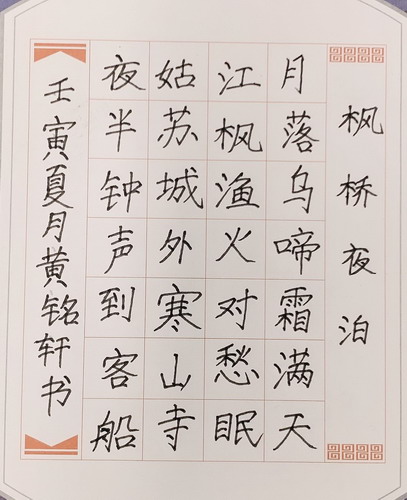 枫桥夜泊
月落乌啼霜满天
江枫渔火对愁眠
姑苏城外寒山寺
夜半钟声到客船
壬寅夏月黄铭轩书